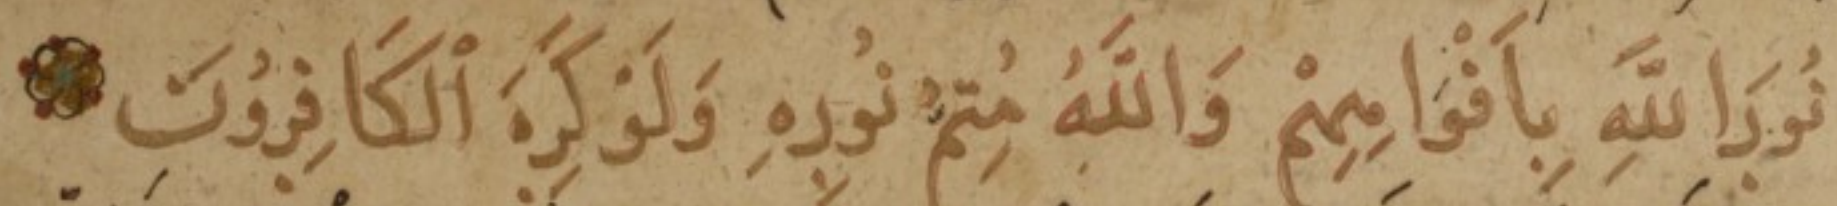 نُورَ اللَّهِ بِأَفْوَاهِهِمْ وَاللَّهُ مُتِمُّ نُورِهِ وَلَوْ كَرِهَ الْكَافِرُونَ